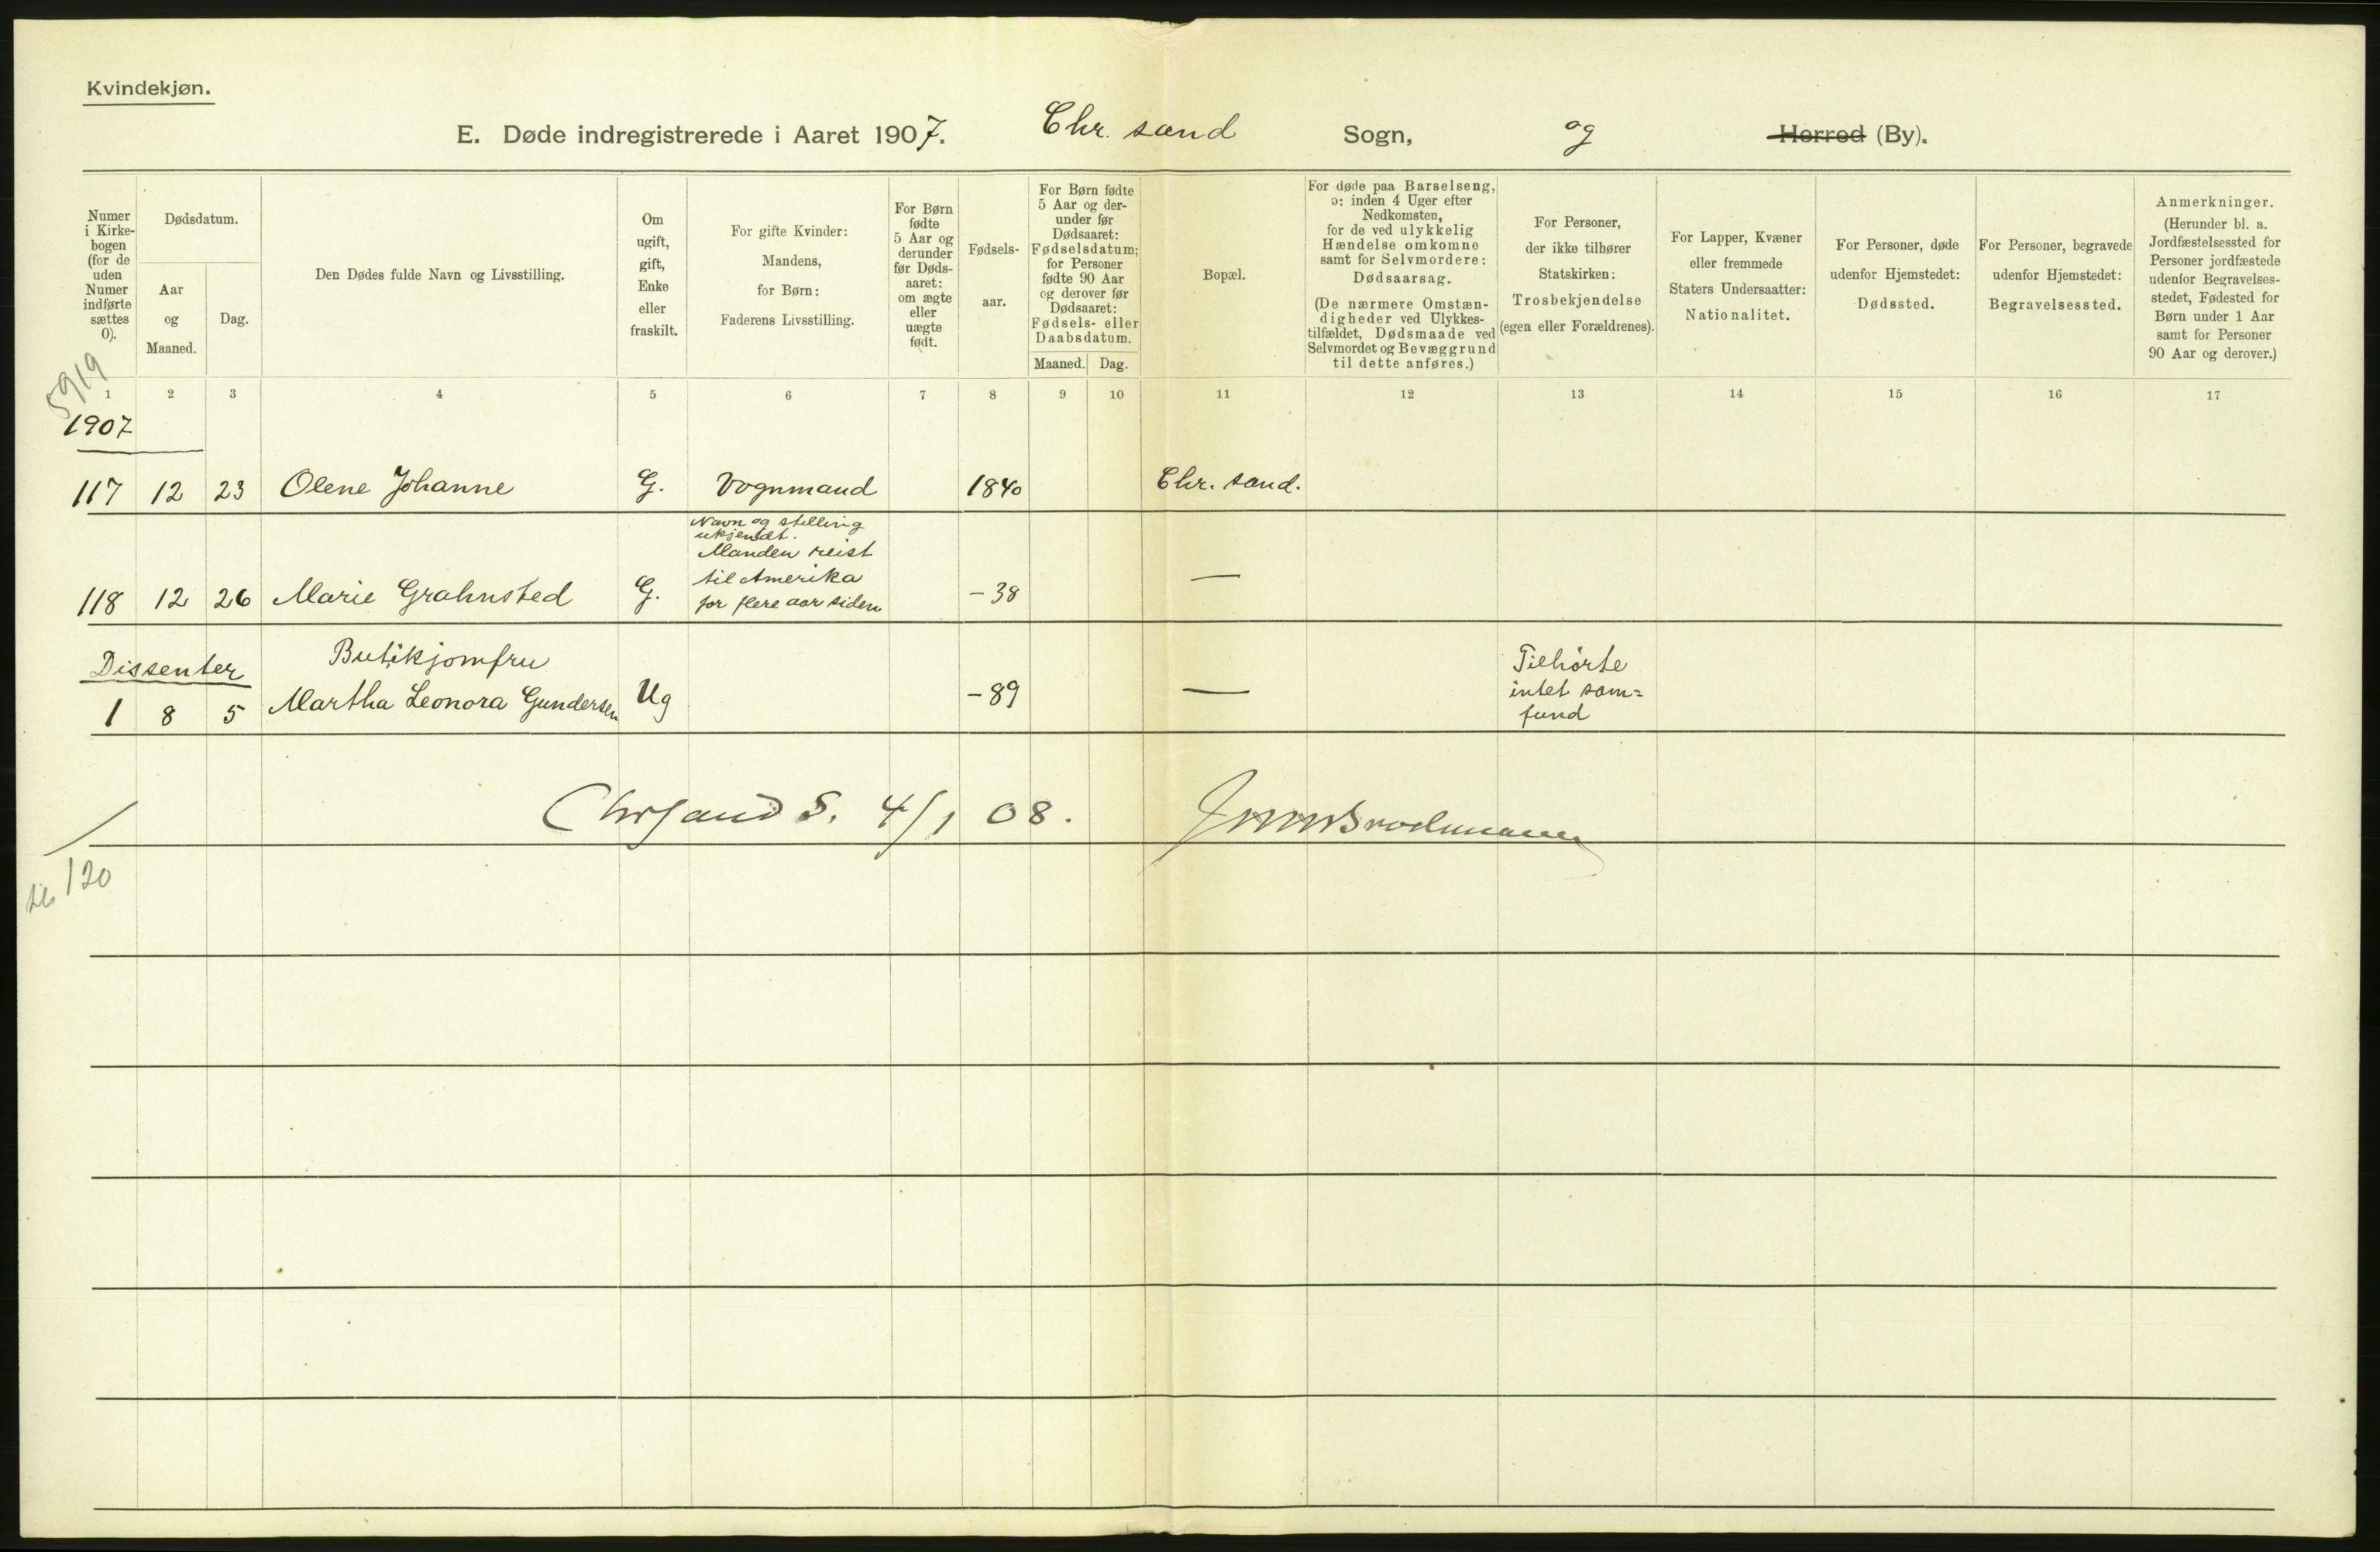 Kvindekjøn.
E. Døde indregistrerede i Aaret 1907. Chr. sand Sogn, og Herred (By).
Numer
i Kirke-
bogen
(for de
uden
Numer
indførte
sættes
0).
Dødsdatum.
Aar
og
Maaned.
Dag.
Den Dødes fulde Navn og Livsstilling.
Om
ugift,
gift,
Enke
eller
fraskilt.
For gifte Kvinder:
Mandens,
for Børn:
Faderens Livsstilling.
For Børn
fødte
5 Aar og
derunder
før Døds-
aaret:
om ægte
eller
uægte
født.
Fødsels-
aar.
For Børn fødte
5 Aar og der-
under før
Dødsaaret:
Fødselsdatum;
for Personer
fødte 90 Aar
og derover før
Dødsaaret:
Fødsels- eller
Daabsdatum.
Maaned. Dag.
Bopæl.
For døde paa Barselseng,
ɔ: inden 4 Uger efter
Nedkomsten,
for de ved ulykkelig
Hændelse omkomne
samt for Selvmordere:
Dødsaarsag.
(De nærmere Omstæn-
digheder ved Ulykkes-
tilfældet, Dødsmaade ved
Selvmordet og Bevæggrund
til dette anføres.)
For Personer,
der ikke tilhører
Statskirken:
Trosbekjendelse
(egen eller Forældrenes).
For Lapper, Kvæner
eller fremmede
Staters Undersaatter:
Nationalitet.
For Personer, døde
udenfor Hjemstedet:
Dødssted.
For Personer, begravede
udenfor Hjemstedet:
Begravelsessted.
Anmerkninger.
(Herunder bl. a.
Jordfæstelsessted for
Personer jordfæstede
udenfor Begravelses-
stedet, Fødested for
Børn under 1 Aar
samt for Personer
90 Aar og derover.)
5919
1 2 3 4 5 6 7 8 9 10 11 12 13 14 15 16 17
1907
117 12 23 Olene Johanne G. Vognmand 1840 Chr. sand.
Navn og stilling
ukjendt.
Manden reist
til Amerika
for flere aar siden
118 12 26 Marie Grahnsted G. - 38 —
Dissenter
Butikjomfru
1 8 5 Martha Leonora Gundersen Ug - 89 —
Tilhörte
intet sam=
fund
Chrsand S. 4/1 08.
til 120